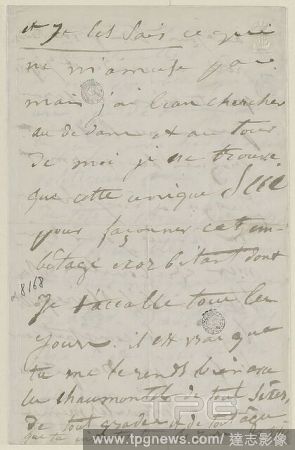 et je les sais ce qui
ne m'amuse pas
mais j'ai beau chercher
au dedans et autour
de moi je ne trouve
que cette unique
pour façonner cet em-
bêtage exorbitant dont
Je t'accable tous les
jours. il est vrai que
tu me le rends bien avec
chaumontel de tout
de tout grade et de tout
8168
TPG
www.tpgnews.com / 達志影像